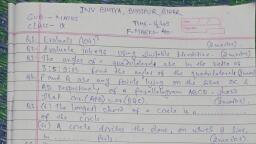 JNV BHITIYA, BHOJPUR, BIHAR
SUB - MATHS TIME - 1:45
CLASS - IX F. MARKS - 40
Q1. Evaluate (104)³ (2 marks)
Q2. Evaluate using suitable identities (2 marks)
Q3. The angles of a quadrilateral are in the ratio of
3:5:9:13. Find the angles of the quadrilateral (3 marks)
Q4. P and Q are any points lying on the sides DC &
AD respectively of a parallelogram ABCD. show
that ar(APB) = ar(BQC). (3 marks)
Q5. (i) The longest chord of a circle is a
of the circle
(ii) A circle divides the plane, on which it lies,
in parts. (2 marks)